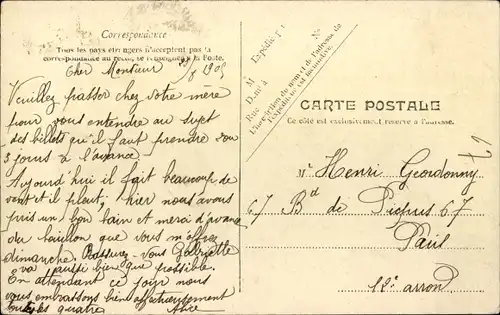 Correspondance
Tous les pays étrangers n'acceptent pas la
correspondance au recto, se renseigner à la Poste.
Cher Monsieur 1905
Veuillez passer chez votre mère
pour vous entendre au sujet
des billets qu'il faut prendre ou
3 jours à l'avance
Aujourd'hui il fait beaucoup de
vent et il pleut, hier nous avons
pris un bon bain et merci d'avance
du que vous m'offrez
dimanche. Rassurez-vous Gabrielle
va aussi bien que possible.
En attendant ce jour nous
vous embrassons bien affectueusement
tous les quatre
Expédié
M
Dmt à
Rue
No
L'inscription du nom et de l'adresse de
l'expéditeur est facultative.
CARTE POSTALE
Ce côté est exclusivement réservé à l'adresse.
Mr Henri
67 Bd de Picpus 67
Paris
12e arrond